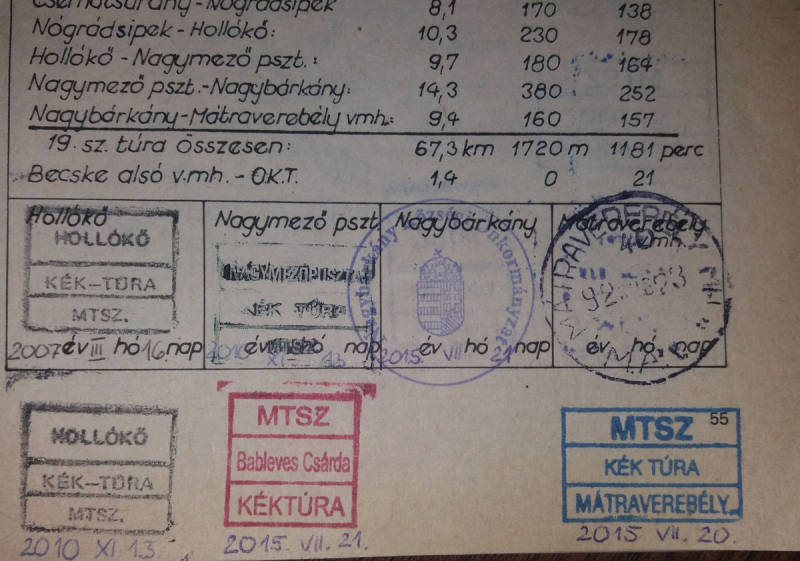 Csernátsurány-Nógrádsipek 8,1 170 138
Nógrádsipek-Hollókő: 10,3 230 178
Hollókő-Nagymező pszt.: 9,7 180 164
Nagymező pszt.-Nagybárkány: 14,3 380 252
Nagybárkány-Mátraverebély vmh.: 9,4 160 157
19. sz. túra összesen: 67,3 km 1720 m 1181 perc
Becske alsó v.mh. - O.K.T. 1,4 0 21
Hollókő Nagymező pszt. Nagybárkány Mátraverebély
v.mh.
HOLLÓKŐ
KÉK-TÚRA
MTSZ.
2007 év III hó 16 nap
NAGYMEZŐPUSZTA
KÉK TÚRA
MTSZ
2010 év XI hó 13 nap
Nagybárkány Községi Önkormányzat
2015. év VII hó 21 nap
MÁTRAVEREBÉLY
M.Á.V.
év hó nap
HOLLÓKŐ
KÉK-TÚRA
MTSZ.
2010 XI 13.
MTSZ
Bableves Csárda
KÉKTÚRA
2015. VII. 21.
55
MTSZ
KÉK TÚRA
MÁTRAVEREBÉLY
2015 VII. 20.